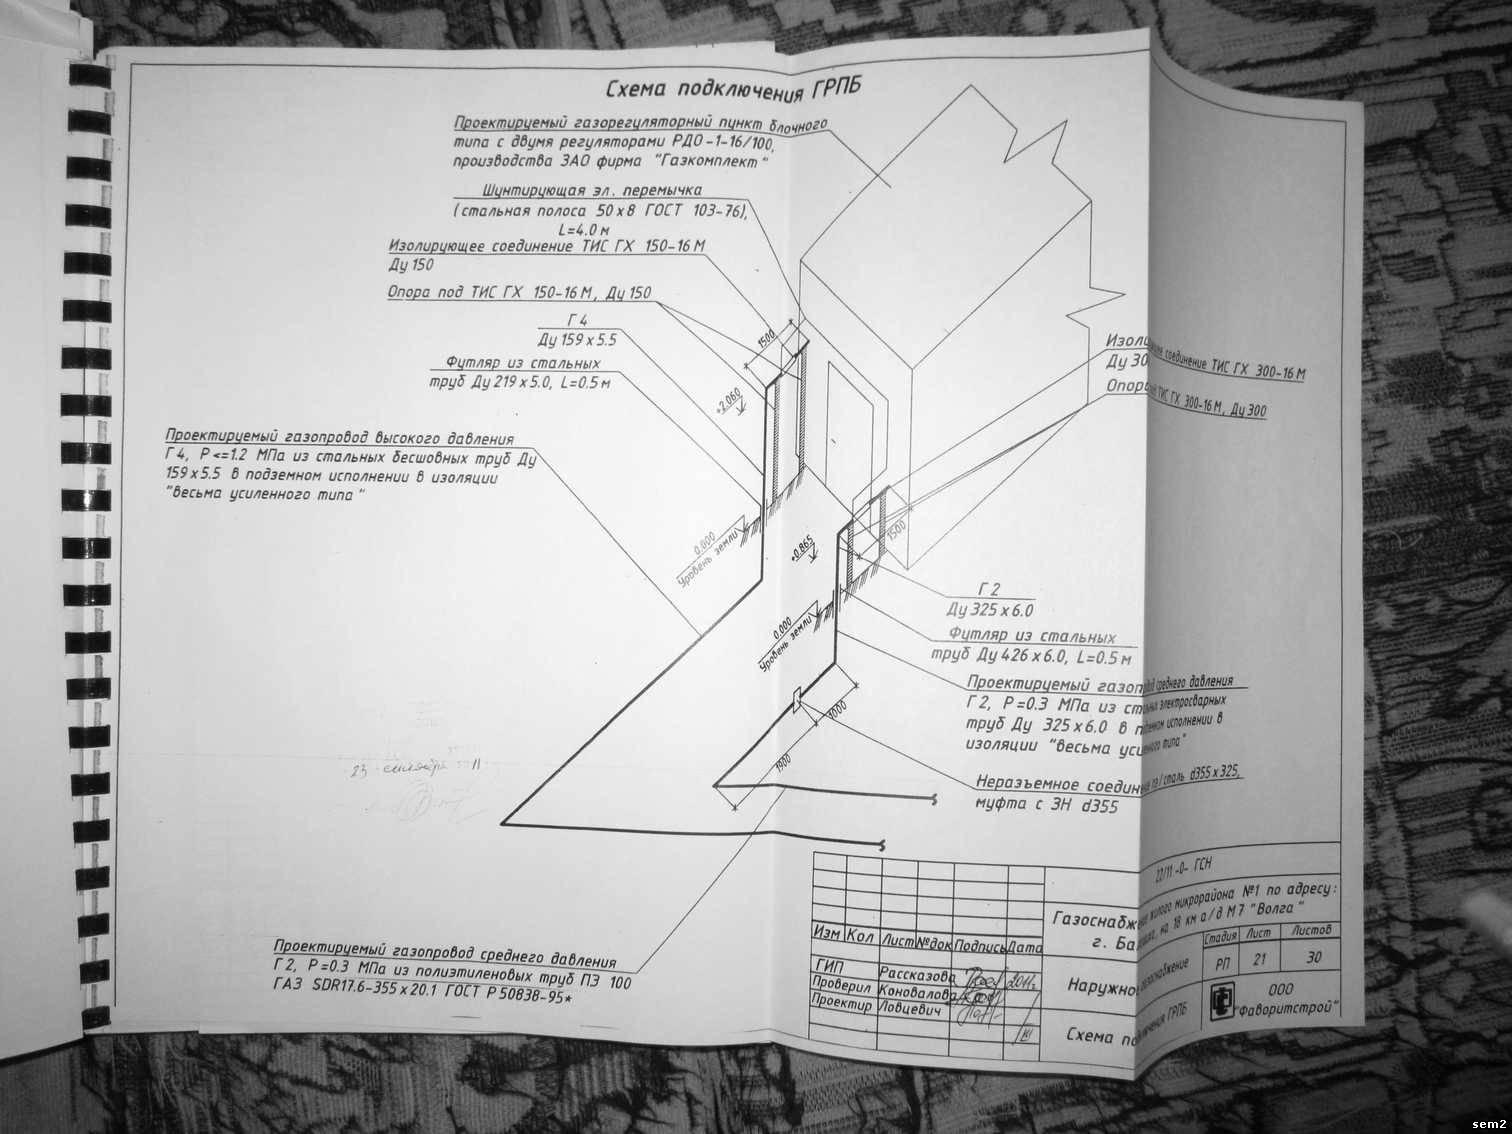 Схема подключения ГРПБ
Проектируемый газорегуляторный пункт блочного
типа с двумя регуляторами РДО-1-16/100,
производства ЗАО фирма "Газкомплект"
Шунтирующая эл. перемычка
(стальная полоса 50x8 ГОСТ 103-76),
L=4.0 м
Изолирующее соединение ТИС ГХ 150-16 М
Ду 150
Опора под ТИС ГХ 150-16 М, Ду 150
Г 4
Ду 159 x 5.5
Футляр из стальных
труб Ду 219 x 5.0, L=0.5 м
Проектируемый газопровод высокого давления
Г 4, Р<=1.2 МПа из стальных бесшовных труб Ду
159 x 5.5 в подземном исполнении в изоляции
"весьма усиленного типа"
1500
+2.060
0.000
Уровень земли
+0.865
0.000
Уровень земли
1500
3000
1900
соединение ТИС ГХ 300-16 М
Ду 30
ТИС ГХ 300-16 М, Ду 300
Г 2
Ду 325 x 6.0
Футляр из стальных
труб Ду 426 x 6.0, L=0.5 м
Проектируемый газопровод среднего давления
Г 2, Р=0.3 МПа из стальных электросварных
труб Ду 325 x 6.0 в исполнении в
изоляции "весьма усиленного типа"
Неразъемное соедин пэ/сталь d355 x 325,
муфта с ЗН d355
23 сентября 11
Проектируемый газопровод среднего давления
Г 2, Р=0.3 МПа из полиэтиленовых труб ПЭ 100
ГАЗ SDR17.6-355 x 20.1 ГОСТ Р 50838-95*
22/11 -0- ГСН
Газоснабжение жилого микрорайона №1 по адресу:
г. Ба на 18 км а/д М7 "Волга"
Изм Кол Лист №док Подпись Дата
ГИП Рассказова 2011г
Проверил Коновалова
Проектир Ловцевич
Стадия Лист Листов
РП 21 30
Схема подключения ГРПБ
ООО
"Фаворитстрой"
sem2